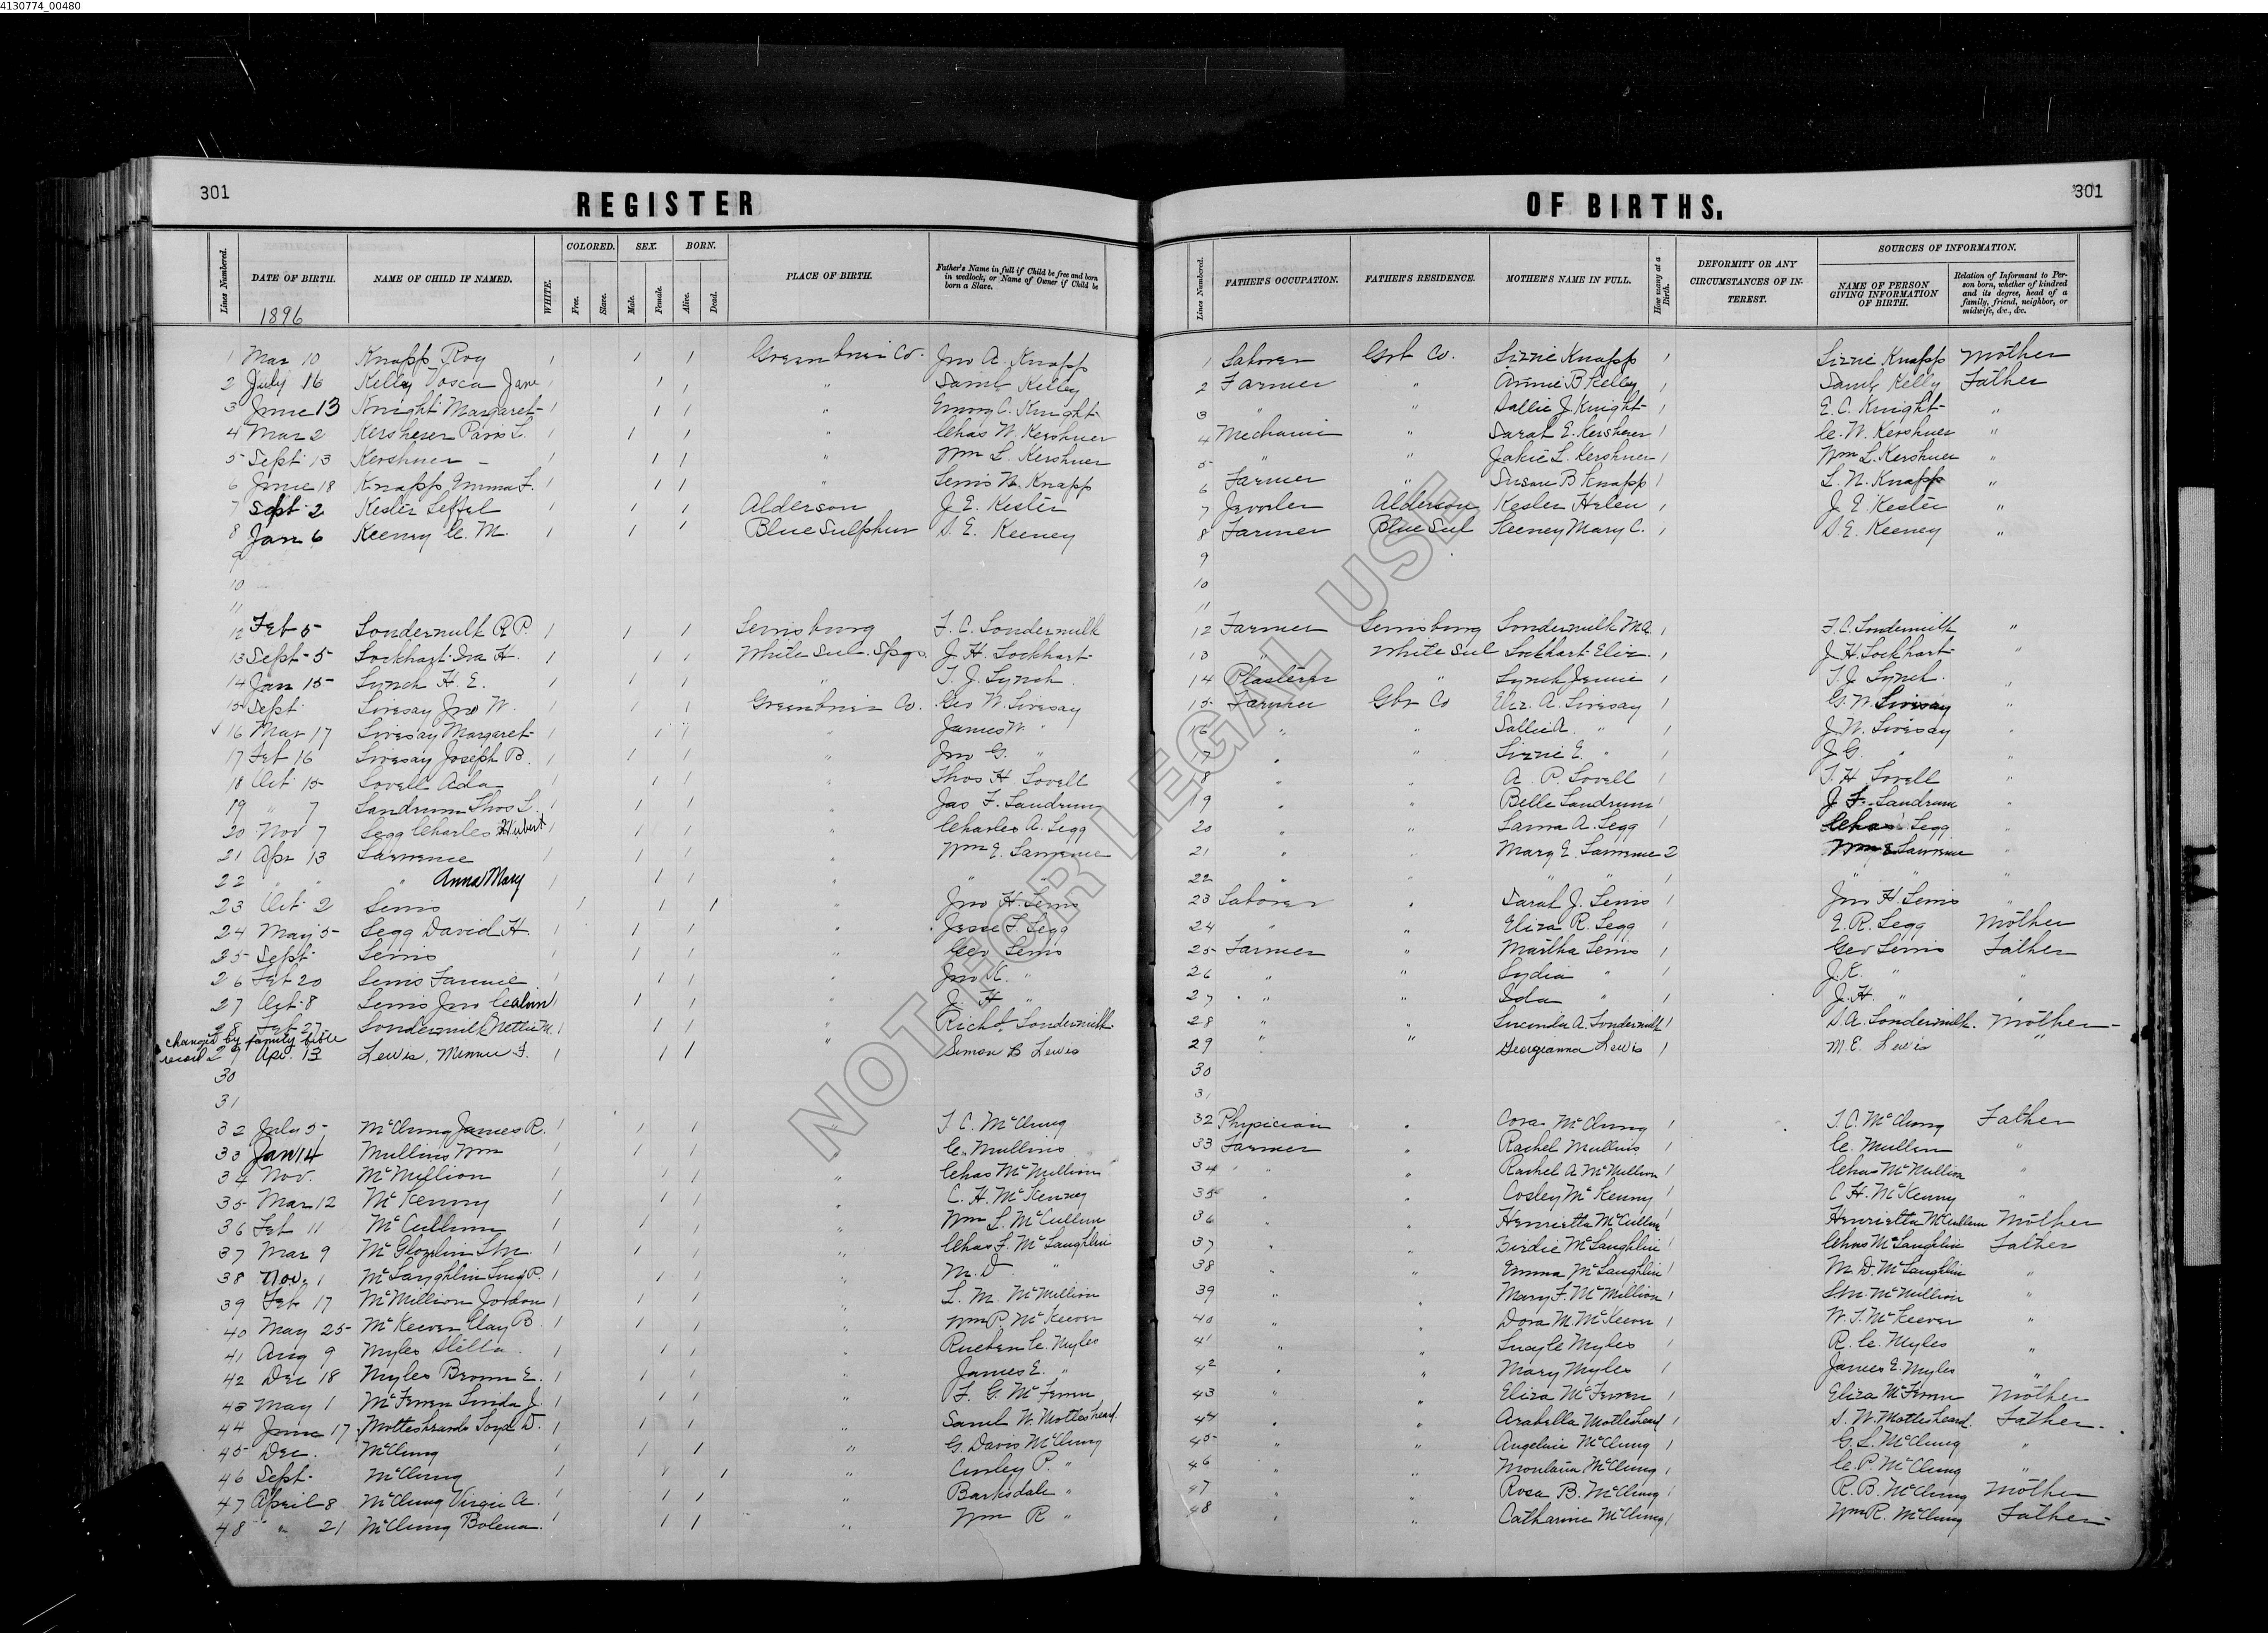 4130774_00480
301
REGISTER OF BIRTHS.
301
Lines Numbered. DATE OF BIRTH. NAME OF CHILD IF NAMED. WHITE. COLORED. Free. Slave. SEX. Male. Female. BORN. Alive. Dead. PLACE OF BIRTH. Father's Name in full if Child be free and born in wedlock, or Name of Owner if Child be born a Slave. Lines Numbered. FATHER'S OCCUPATION. FATHER'S RESIDENCE. MOTHER'S NAME IN FULL. How many at a Birth. DEFORMITY OR ANY CIRCUMSTANCES OF INTEREST. SOURCES OF INFORMATION. NAME OF PERSON GIVING INFORMATION OF BIRTH. Relation of Informant to Person born, whether of kindred and its degree, head of a family, friend, neighbor, or midwife, &c., &c.
1896
1 Mar 10 Knapp Roy 1 1 1 Greenbrier Co. Jno A. Knapp 1 Laborer Grb Co. Lizzie Knapp 1 Lizzie Knapp Mother
2 July 16 Kelly Vosca Jane 1 1 1 " Saml Kelley 2 Farmer " Annie B Kelley 1 Saml Kelly Father
3 June 13 Knight Margaret 1 1 1 " Emory C. Knight 3 " " Sallie J. Knight 1 E. C. Knight "
4 Mar 2 Kershener Paris L. 1 1 1 " Chas W. Kershner 4 Mechanic " Sarah E. Kershener 1 C. W. Kershner "
5 Sept 13 Kershner - 1 1 1 " Wm L. Kershner 5 " " Jakie L. Kershner 1 Wm L. Kershner "
6 June 18 Knapp Emma F. 1 1 1 " Lewis N. Knapp 6 Farmer " Susan B Knapp 1 L. N. Knapp "
7 Sept 2 Kester Leffel 1 1 1 Alderson J. E. Kester 7 Jeweler Alderson Kesler Helen 1 J. E. Kester "
8 Jan 6 Keeney C. M. 1 1 1 Blue Sulphur S. E. Keeney 8 Farmer Blue Sul Keeney Mary C. 1 S. E. Keeney "
9 9
10 10
11 11
12 Feb 5 Londermilk R. P. 1 1 1 Lewisburg F. C. Londermilk 12 Farmer Lewisburg Londermilk M. A. 1 F. C. Londermilk "
13 Sept 5 Lockhart Ira H. 1 1 1 White Sul. Spgs. J. H. Lockhart 13 " White Sul Lockhart Eliz. 1 J. H. Lockhart "
14 Jan 15 Lynch H. E. 1 1 1 " T. J. Lynch 14 Plasterer " Lynch Jennie 1 T. J. Lynch "
15 Sept Livesay Jno W. 1 1 1 Greenbrier Co. Geo W. Livesay 15 Farmer Gbr Co Eliz. A. Livesay 1 G. W. Livesay "
16 Mar 17 Livesay Margaret 1 1 1 " James W. " 16 " " Sallie A. " 1 J. W. Livesay "
17 Feb 16 Livesay Joseph B. 1 1 1 " Jno G. " 17 " " Lizzie E. " 1 J. G. "
18 Oct 15 Lovell Ada 1 1 1 " Thos H Lovell 18 " " A. P. Lovell 1 T. H Lovell "
19 " 7 Landrum Thos L. 1 1 1 " Jas F. Landrum 19 " " Belle Landrum 1 J. F. Landrum "
20 Nov 7 Legg Charles Hubert 1 1 1 " Charles A. Legg 20 " " Laura A. Legg 1 Chas Legg "
21 Apr 13 Lawrence 1 1 1 " Wm E. Lawrence 21 " " Mary E. Lawrence 2 Wm E Lawrence "
22 " " " Anna Mary 1 1 1 " " 22 " " " " 1 " "
23 Oct 2 Lewis 1 1 1 " Jno H. Lewis 23 Laborer " Sarah J. Lewis 1 Jno H Lewis "
24 May 5 Legg David H. 1 1 1 " Jesse F Legg 24 " " Eliza R. Legg 1 E. R. Legg Mother
25 Sept Lewis 1 1 1 " Geo Lewis 25 Farmer " Martha Lewis 1 Geo Lewis Father
26 Feb 20 Lewis Fannie 1 1 1 " Jno K. " 26 " " Lydia " 1 J. K. " "
27 Oct 8 Lewis Jno Calvin 1 1 1 " J. H " 27 " " Ida " 1 J. H. " "
28 Feb 27 Londermilk Nettie M. 1 1 1 " Richd. Londermilk 28 " " Lucinda A. Londermilk 1 S. A. Londermilk. Mother
changed by family bible
record 29 Apr. 13 Lewis, Minnie F. 1 1 1 " Simon B Lewis 29 " " Georgeanna Lewis 1 M. E. Lewis "
30 30
31 31
32 July 5 McClung James R. 1 1 1 T. C. McClung 32 Physician " Cora McClung 1 T. C. McClung Father
33 Jan 14 Mullins Wm 1 1 1 " C. Mullins 33 Farmer " Rachel Mullins 1 C. Mullen "
34 Nov. McMillion 1 1 1 " Chas McMillion 34 " " Rachel A McMillion 1 Chas McMillion "
35 Mar 12 McKenny 1 1 1 " C. H. McKenney 35 " " Cosley McKenny 1 C H. McKenny "
36 Feb 11 McCullum 1 1 1 " Wm L. McCullum 36 " Henrietta McCullum 1 Henrietta McCullum Mother
37 Mar 9 1 1 1 " Chas F. McLaughlin 37 " " Birdie McLaughlin 1 Chas McLaughlin Father
38 Nov. 1 McLaughlin P. 1 1 1 " M. D. " 38 " " Emma McLaughlin 1 M. D. McLaughlin "
39 Feb 17 McMillion Jordon 1 1 1 " L. M. McMillion 39 " " Mary F. McMillion 1 McMillion "
40 May 25 McKeever Clay B. 1 1 1 " Wm P. McKeever 40 " " Dora M. McKeever 1 W. T. McKeever "
41 Aug 9 Myles Stella 1 1 1 " Rueben C. Myles 41 " " Lucy C Myles 1 R. C. Myles "
42 Dec 18 Myles Brown E. 1 1 1 " James E. " 42 " " Mary Myles 1 James E. Myles "
43 May 1 McFerren Linda J. 1 1 1 " F. G. McFerren 43 " " Eliza McFerren 1 Eliza McFerren Mother
44 June 17 D. 1 1 1 " Saml W. Mottesheard 44 " " Arabella Mottesheard 1 S. W. Mottesheard Father
45 Dec. McClung 1 1 1 " G. Davis McClung 45 " " Angeline McClung 1 G. L. McClung "
46 Sept. McClung 1 1 1 " P. " 46 " " McClung 1 C. P. McClung "
47 April 8 McClung Virgie A. 1 1 1 " Barksdale " 47 " " Rosa B. McClung 1 R. B. McClung Mother
48 " 21 McClung Bolena. 1 1 1 " Wm R " 48 " " Catharine McClung 1 Wm R. McClung Father
NOT FOR LEGAL USE